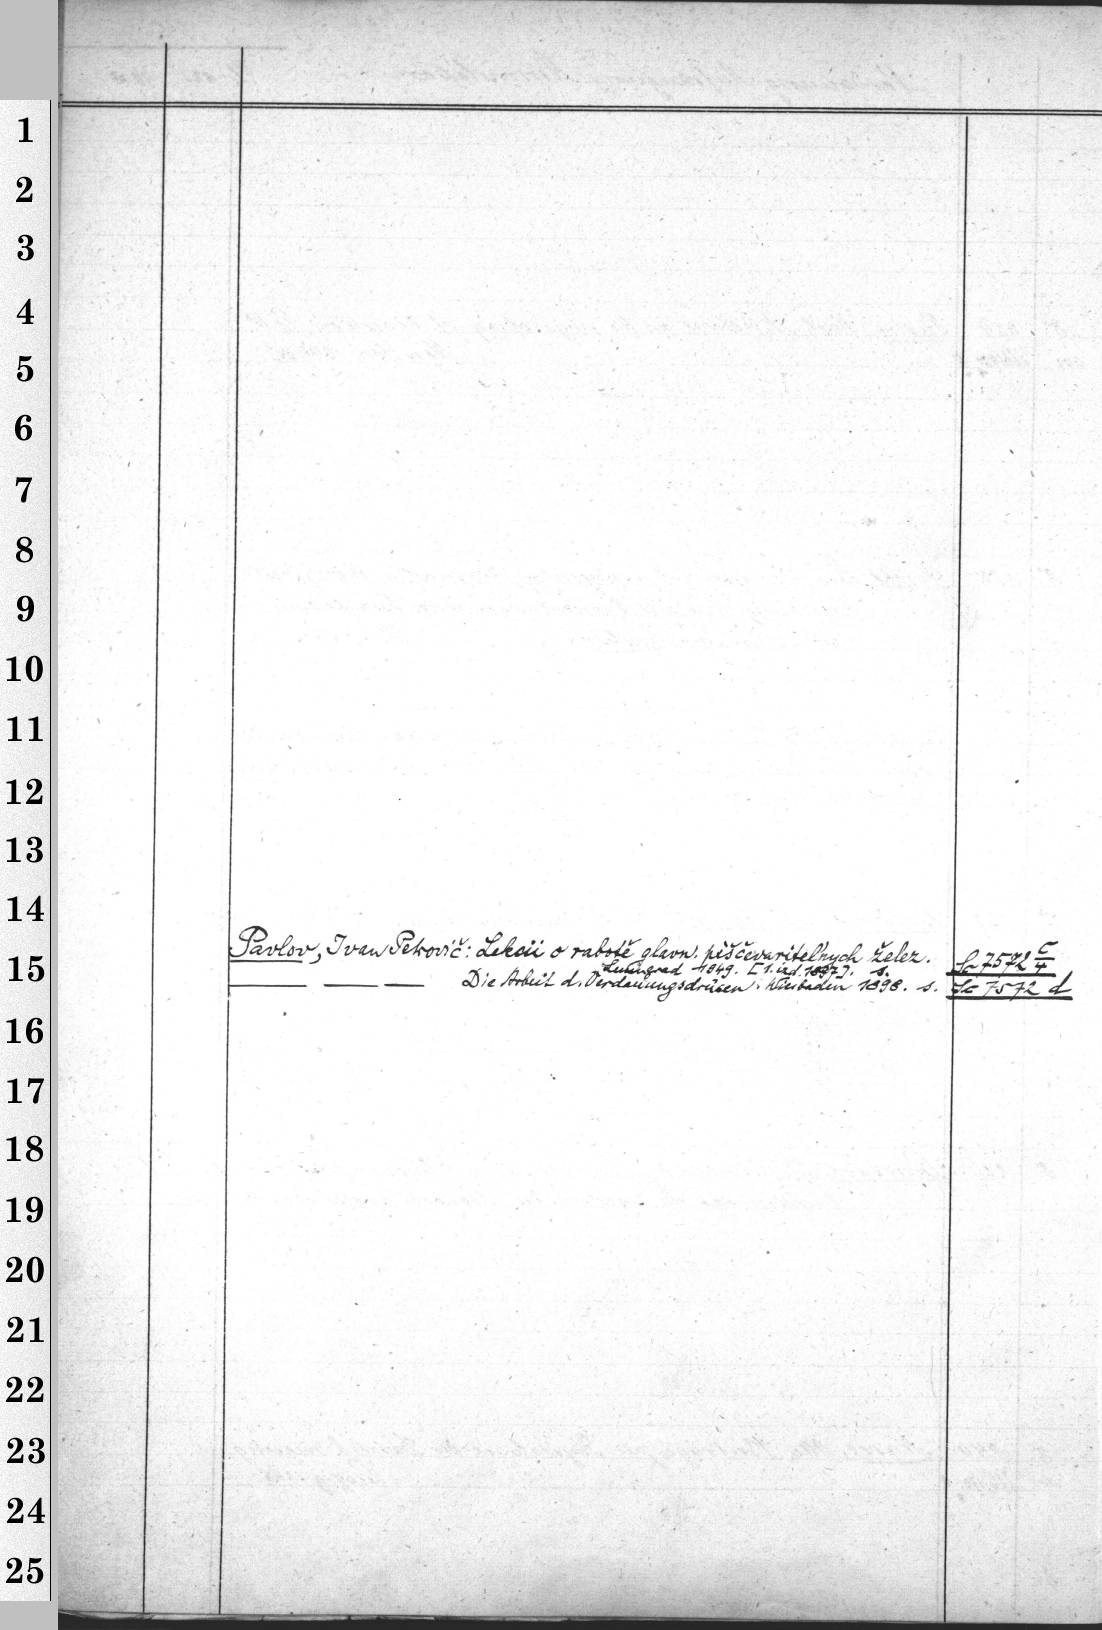 1
2
3
4
5
6
7
8
9
10
11
12
13
14
Pavlov, Ivan Petrovič: Lekcii o rabotě glavn. piščevaritel'nych želez. Sc 7572 c/4
15
Leningrad 1949. [1. izd. 1897]. s.
Die Arbeit d. Verdauungsdrüsen. Wiesbaden 1898. s. Sc 7572 d
16
17
18
19
20
21
22
23
24
25